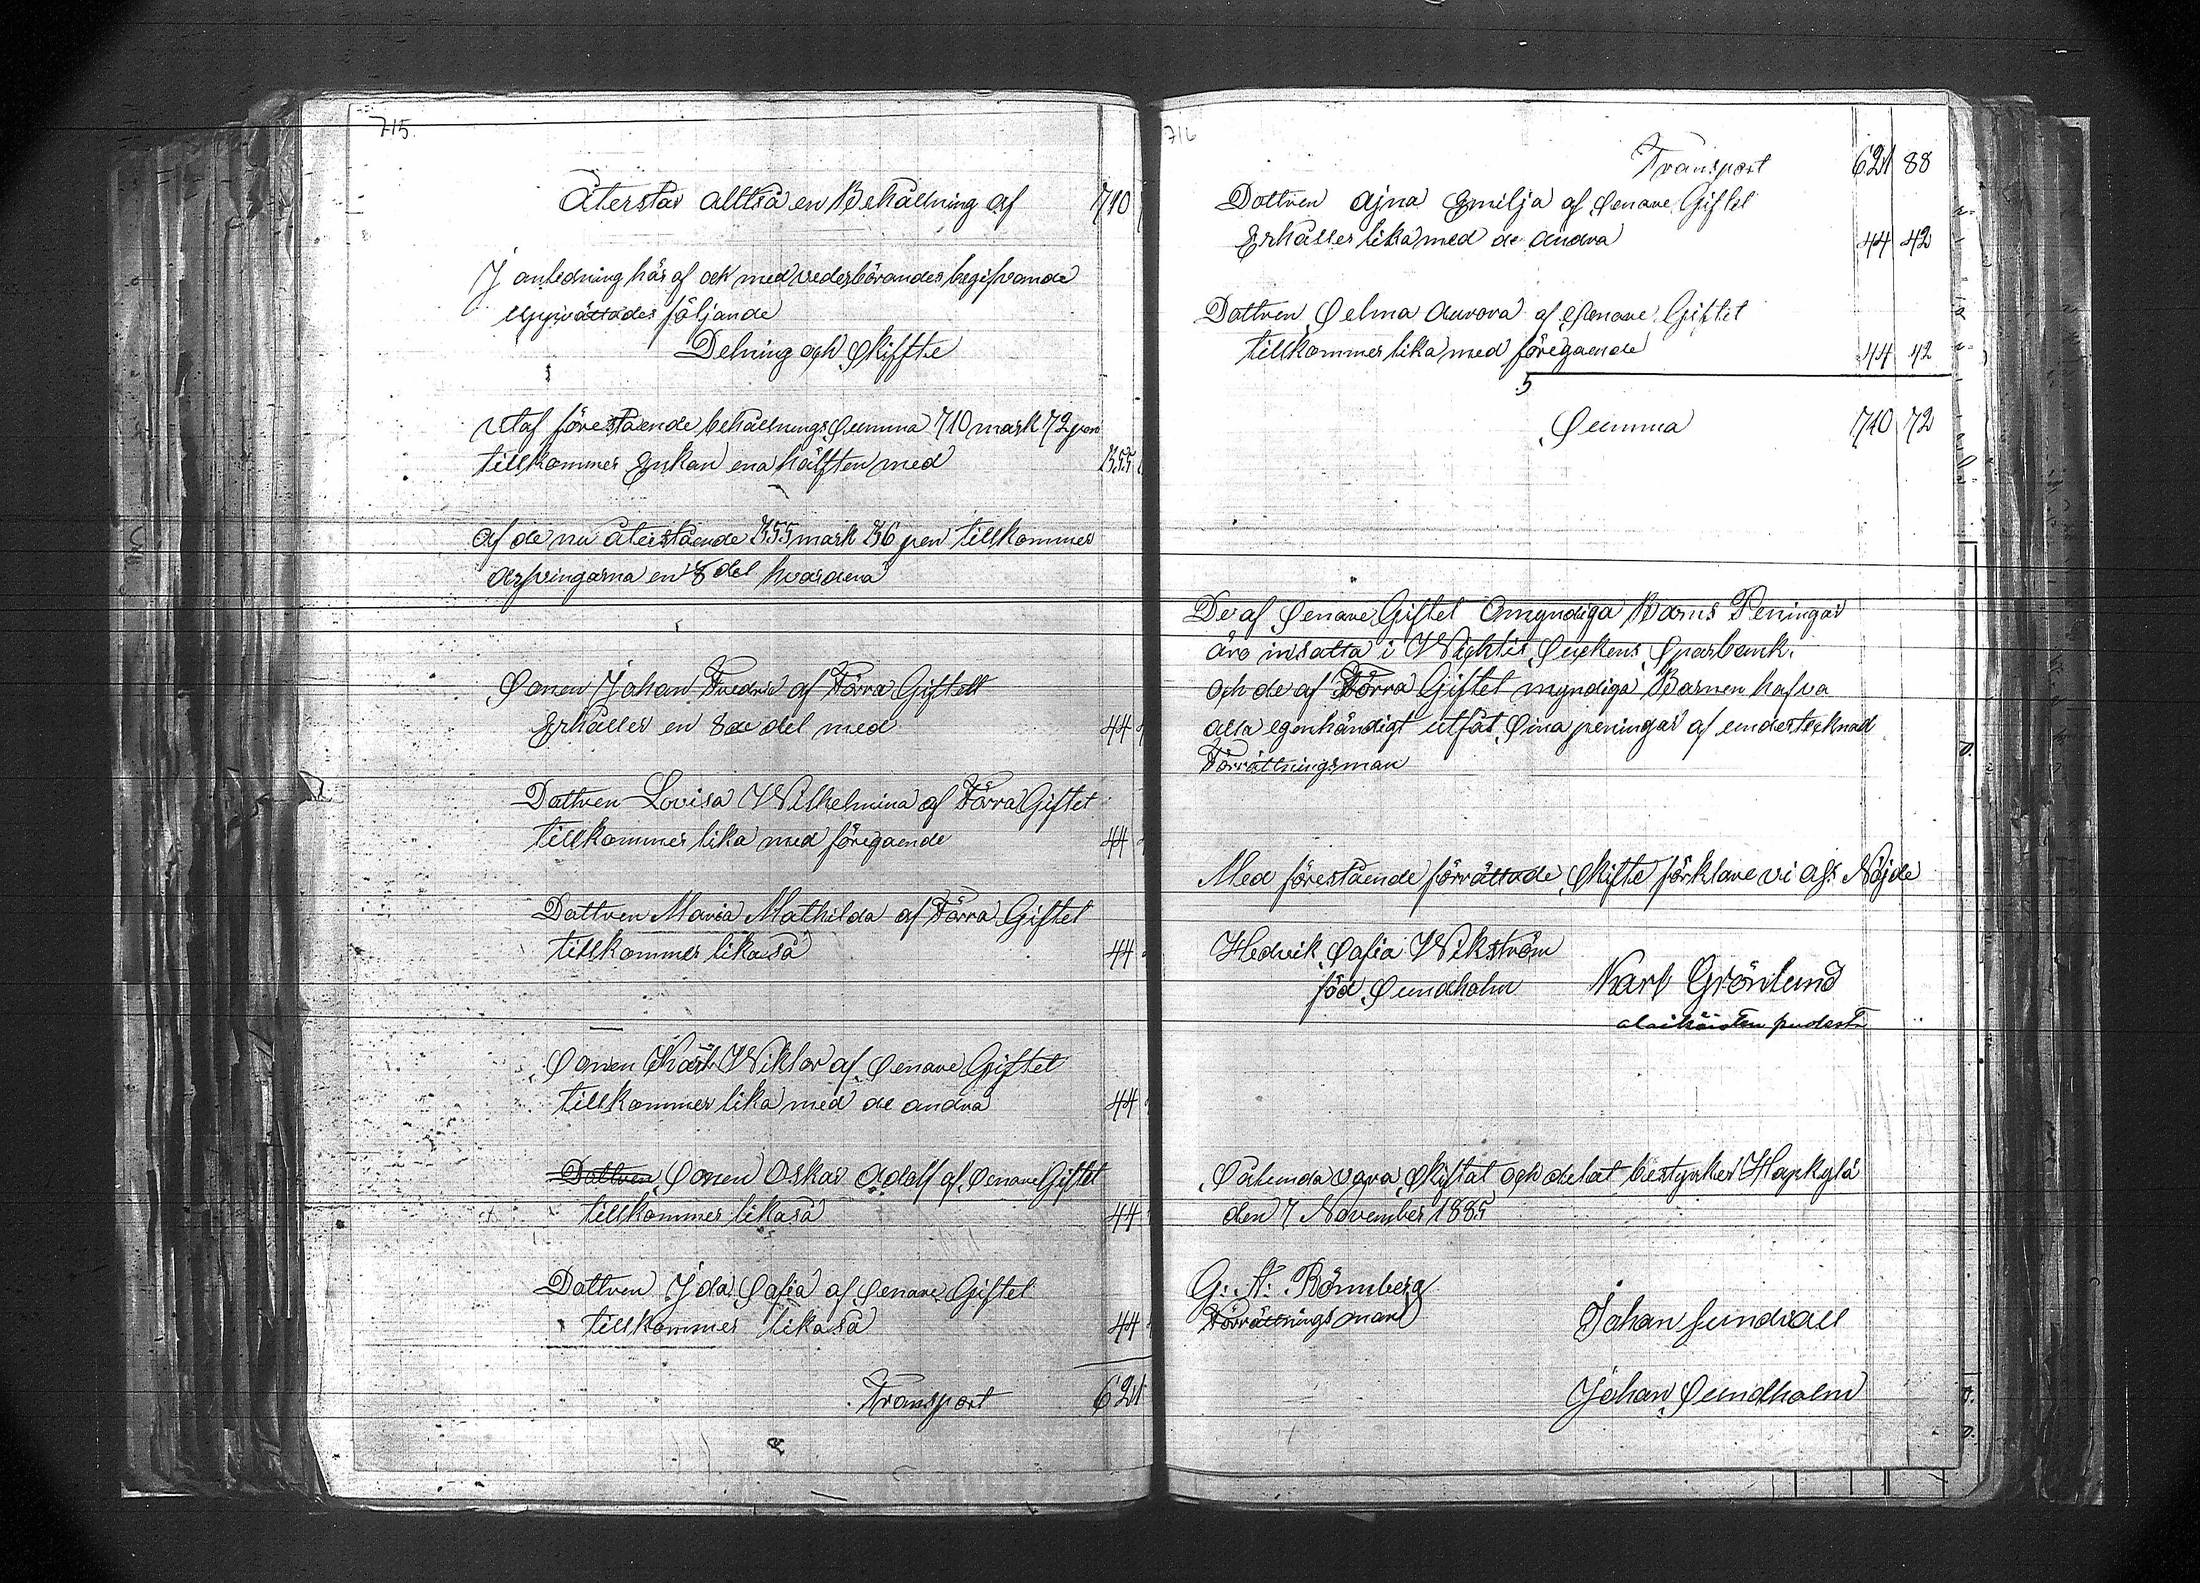 715.
Återstår alltså en Behållning af 710
I anledning häraf och med vederbörandes begifvande
upprättades följande
Delning och Skiffte
Utaf förestående behållnings Summa 710 mark 72 pen
tillkommer Enkan ena hälften med 355
af de nu återstående 355 mark 36 pen tillkommer
arfvingarna en 8 del hvardera
Sonen Johan Fredrik af Förra Giftett
Erhåller en 8de del med 44
Dottren Lovisa Wilhelmina af Förra Giftet
tillkommer lika med föregaende 44
Dottren Maria Mathilda af Förra Giftet
tillkommer likaså 44
Sonen Karl Wiktor af Senare Giftet
tillkommer lika med de andra 44
Dottren Sonen Oskar Adolf af Senare Giftet
tillkommer likaså 44
Dottren Ida Sofia af Senare Giftet
tillkommer likaså 44
Transport 621
716
Transport 621 88
Dottren Ajna Emilja af Senare Giftet
Erhåller lika med de andra 44 42
Dottren Selma Aurora af Senare Giftet
tillkommer lika med föregaende 44 42
5
Summa 710 72
De af Senare Giftet Omyndiga Barns Peningar
äro insatta i Wichtis Sockens Sparbank.
och de af Förra Giftet myndiga Barnen hafva
alla egenhändigt utfåt Sina peningar af undertecknad
Förrättningsman
Med förestående förrättade Skifte förklare vi oss Nöjde
Hedvik Sofia Wikström
föd Sundholm
Karl Grönlund
alaikäisten puolesta
Sålunda vara Skiftat och delat bestyrker Hapkylä
den 7 November 1885
G: A: Rönnberg
Förrättningsman
Johan Sundvall
Johan Sundholm